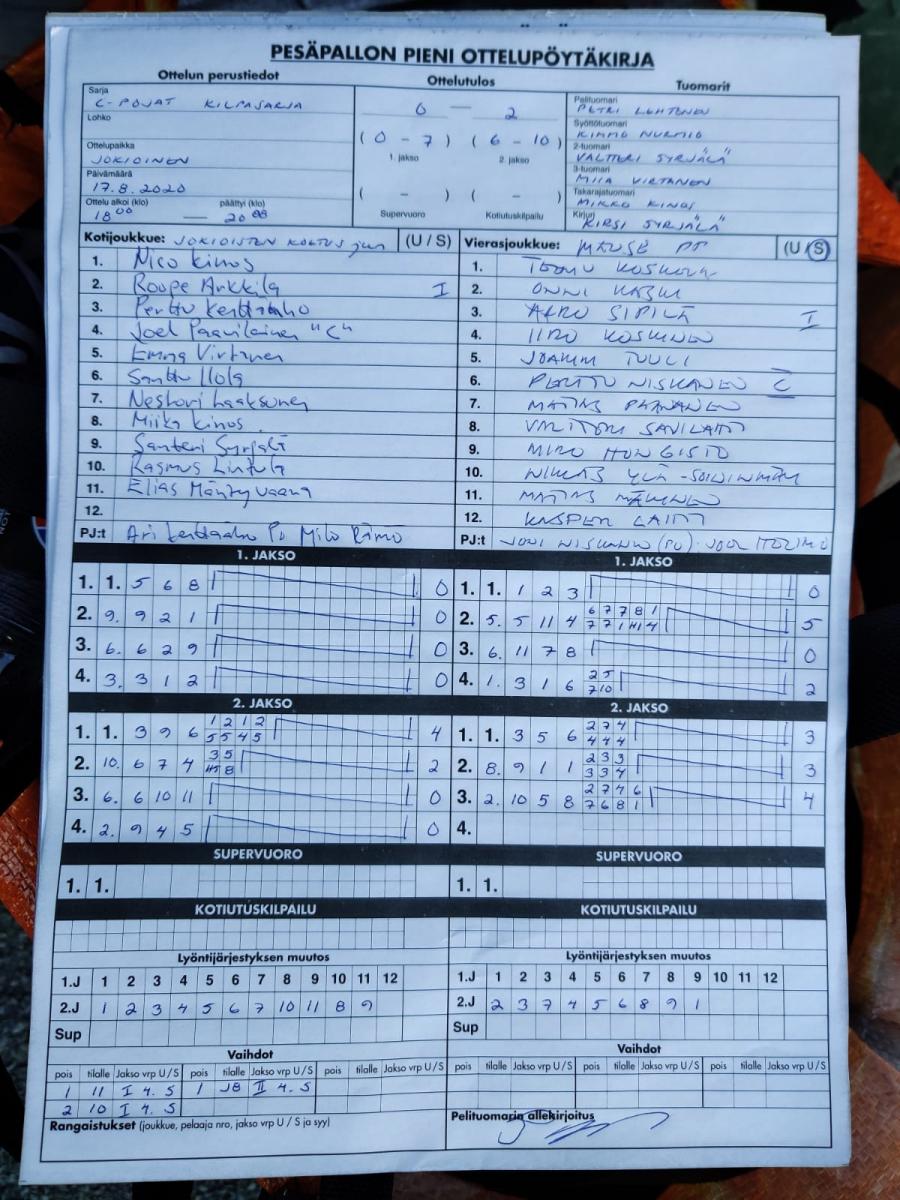 PESÄPALLON PIENI OTTELUPÖYTÄKIRJA
Ottelun perustiedot
Sarja
C-POJAT KILPASARJA
Lohko
Ottelupaikka
JOKIOINEN
Päivämäärä
17.8.2020
Ottelu alkoi (klo) päättyi (klo)
18 00 — 20 00
Ottelutulos
0 — 2
(0 - 7) (6 - 10)
1. jakso 2. jakso
( - ) ( - )
Supervuoro Kotiutuskilpailu
Tuomarit
Pelituomari
PETRI LEHTONEN
Syöttötuomari
KIMMO NURMIO
2-tuomari
VALTTERI SYRJÄLÄ
3-tuomari
MIIA VIRTANEN
Takarajatuomari
MIKKO KINOS
Kirjuri
KIRSI SYRJÄLÄ
Kotijoukkue: JOKIOISTEN KOETUS jun (U / S)
1. Nico Kinos
2. Roope Arkkila I
3. Perttu Kerttaaho
4. Joel Paavilainen "C"
5. Emma Virtanen
6. Santtu Ilola
7. Nestori Laaksonen
8. Miika Kinos
9. Santeri Syrjälä
10. Rasmus Lintula
11. Elias Mäntyvaara
12.
PJ:t Ari Kerttaaho PJ Milo Rämö
Vierasjoukkue: MANSE PP (U / S)
1. TEEMU KOSKELA
2. ONNI
3. AARO SIPILÄ I
4. IIRO KOSKINEN
5. JOAKIM TUULI
6. PERTTU NISKANEN C
7. MATIAS PAANANEN
8. VALTTERI SAVILAHTI
9. MIRO HONGISTO
10. NIKLAS YLÄ-SOININMÄKI
11. MATIAS MÄKINEN
12. KASPER LAHTI
PJ:t JONI NISKANEN (PJ)
1. JAKSO
1. 1. 5 6 8 0
2. 9. 9 2 1 0
3. 6. 6 2 9 0
4. 3. 3 1 2 0
1. JAKSO
1. 1. 1 2 3 0
2. 5. 5 11 4 6 7 7 8 1 5
7 7 1 4
3. 6. 11 7 8 0
4. 1. 3 1 6 2 5 2
7 10
2. JAKSO
1. 1. 3 9 6 1 2 1 2 4
5 5 4 5
2. 10. 6 7 4 3 5 2
8
3. 6. 6 10 11 0
4. 2. 9 4 5 0
2. JAKSO
1. 1. 3 5 6 2 7 4 3
4 4 4
2. 8. 9 1 1 2 3 3 3
3 3 4
3. 2. 10 5 8 2 7 4 6 4
7 6 8 1
4.
SUPERVUORO
1. 1.
SUPERVUORO
1. 1.
KOTIUTUSKILPAILU
KOTIUTUSKILPAILU
Lyöntijärjestyksen muutos
1.J 1 2 3 4 5 6 7 8 9 10 11 12
2.J 1 2 3 4 5 6 7 10 11 8 9
Sup
Lyöntijärjestyksen muutos
1.J 1 2 3 4 5 6 7 8 9 10 11 12
2.J 2 3 7 4 5 6 8 9 1
Sup
Vaihdot
pois tilalle Jakso vrp U / S pois tilalle Jakso vrp U / S pois tilalle
1 11 I 4. S 1 J8 II 4. S
2 10 I 4. S
Vaihdot
pois tilalle Jakso vrp U / S pois tilalle Jakso vrp U / S pois tilalle Jakso vrp U / S
Rangaistukset (joukkue, pelaaja nro, jakso vrp U / S ja syy)
Pelituomarin allekirjoitus